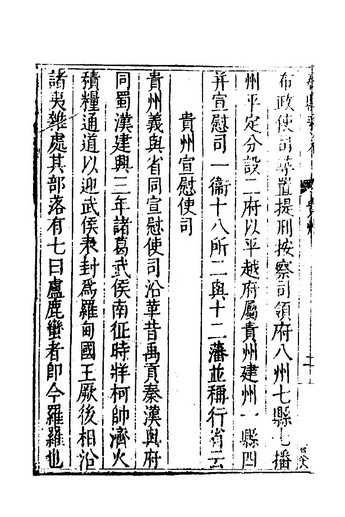 布政使司尋置提刑按察司領府八州七縣七播
州平定分設二府以平越府屬貴州建州一縣四
并宣慰司一衞十八所二與十二藩並稱行省云
貴州宣慰使司
貴州義與省同宣慰使司沿革昔禹貢秦漢與府
同蜀漢建興三年諸葛武侯南征時牂柯帥濟火
積糧通道以迎武侯表封爲羅甸國王厥後相沿
諸夷雜處其部落有七曰盧鹿蠻者即今羅羅也